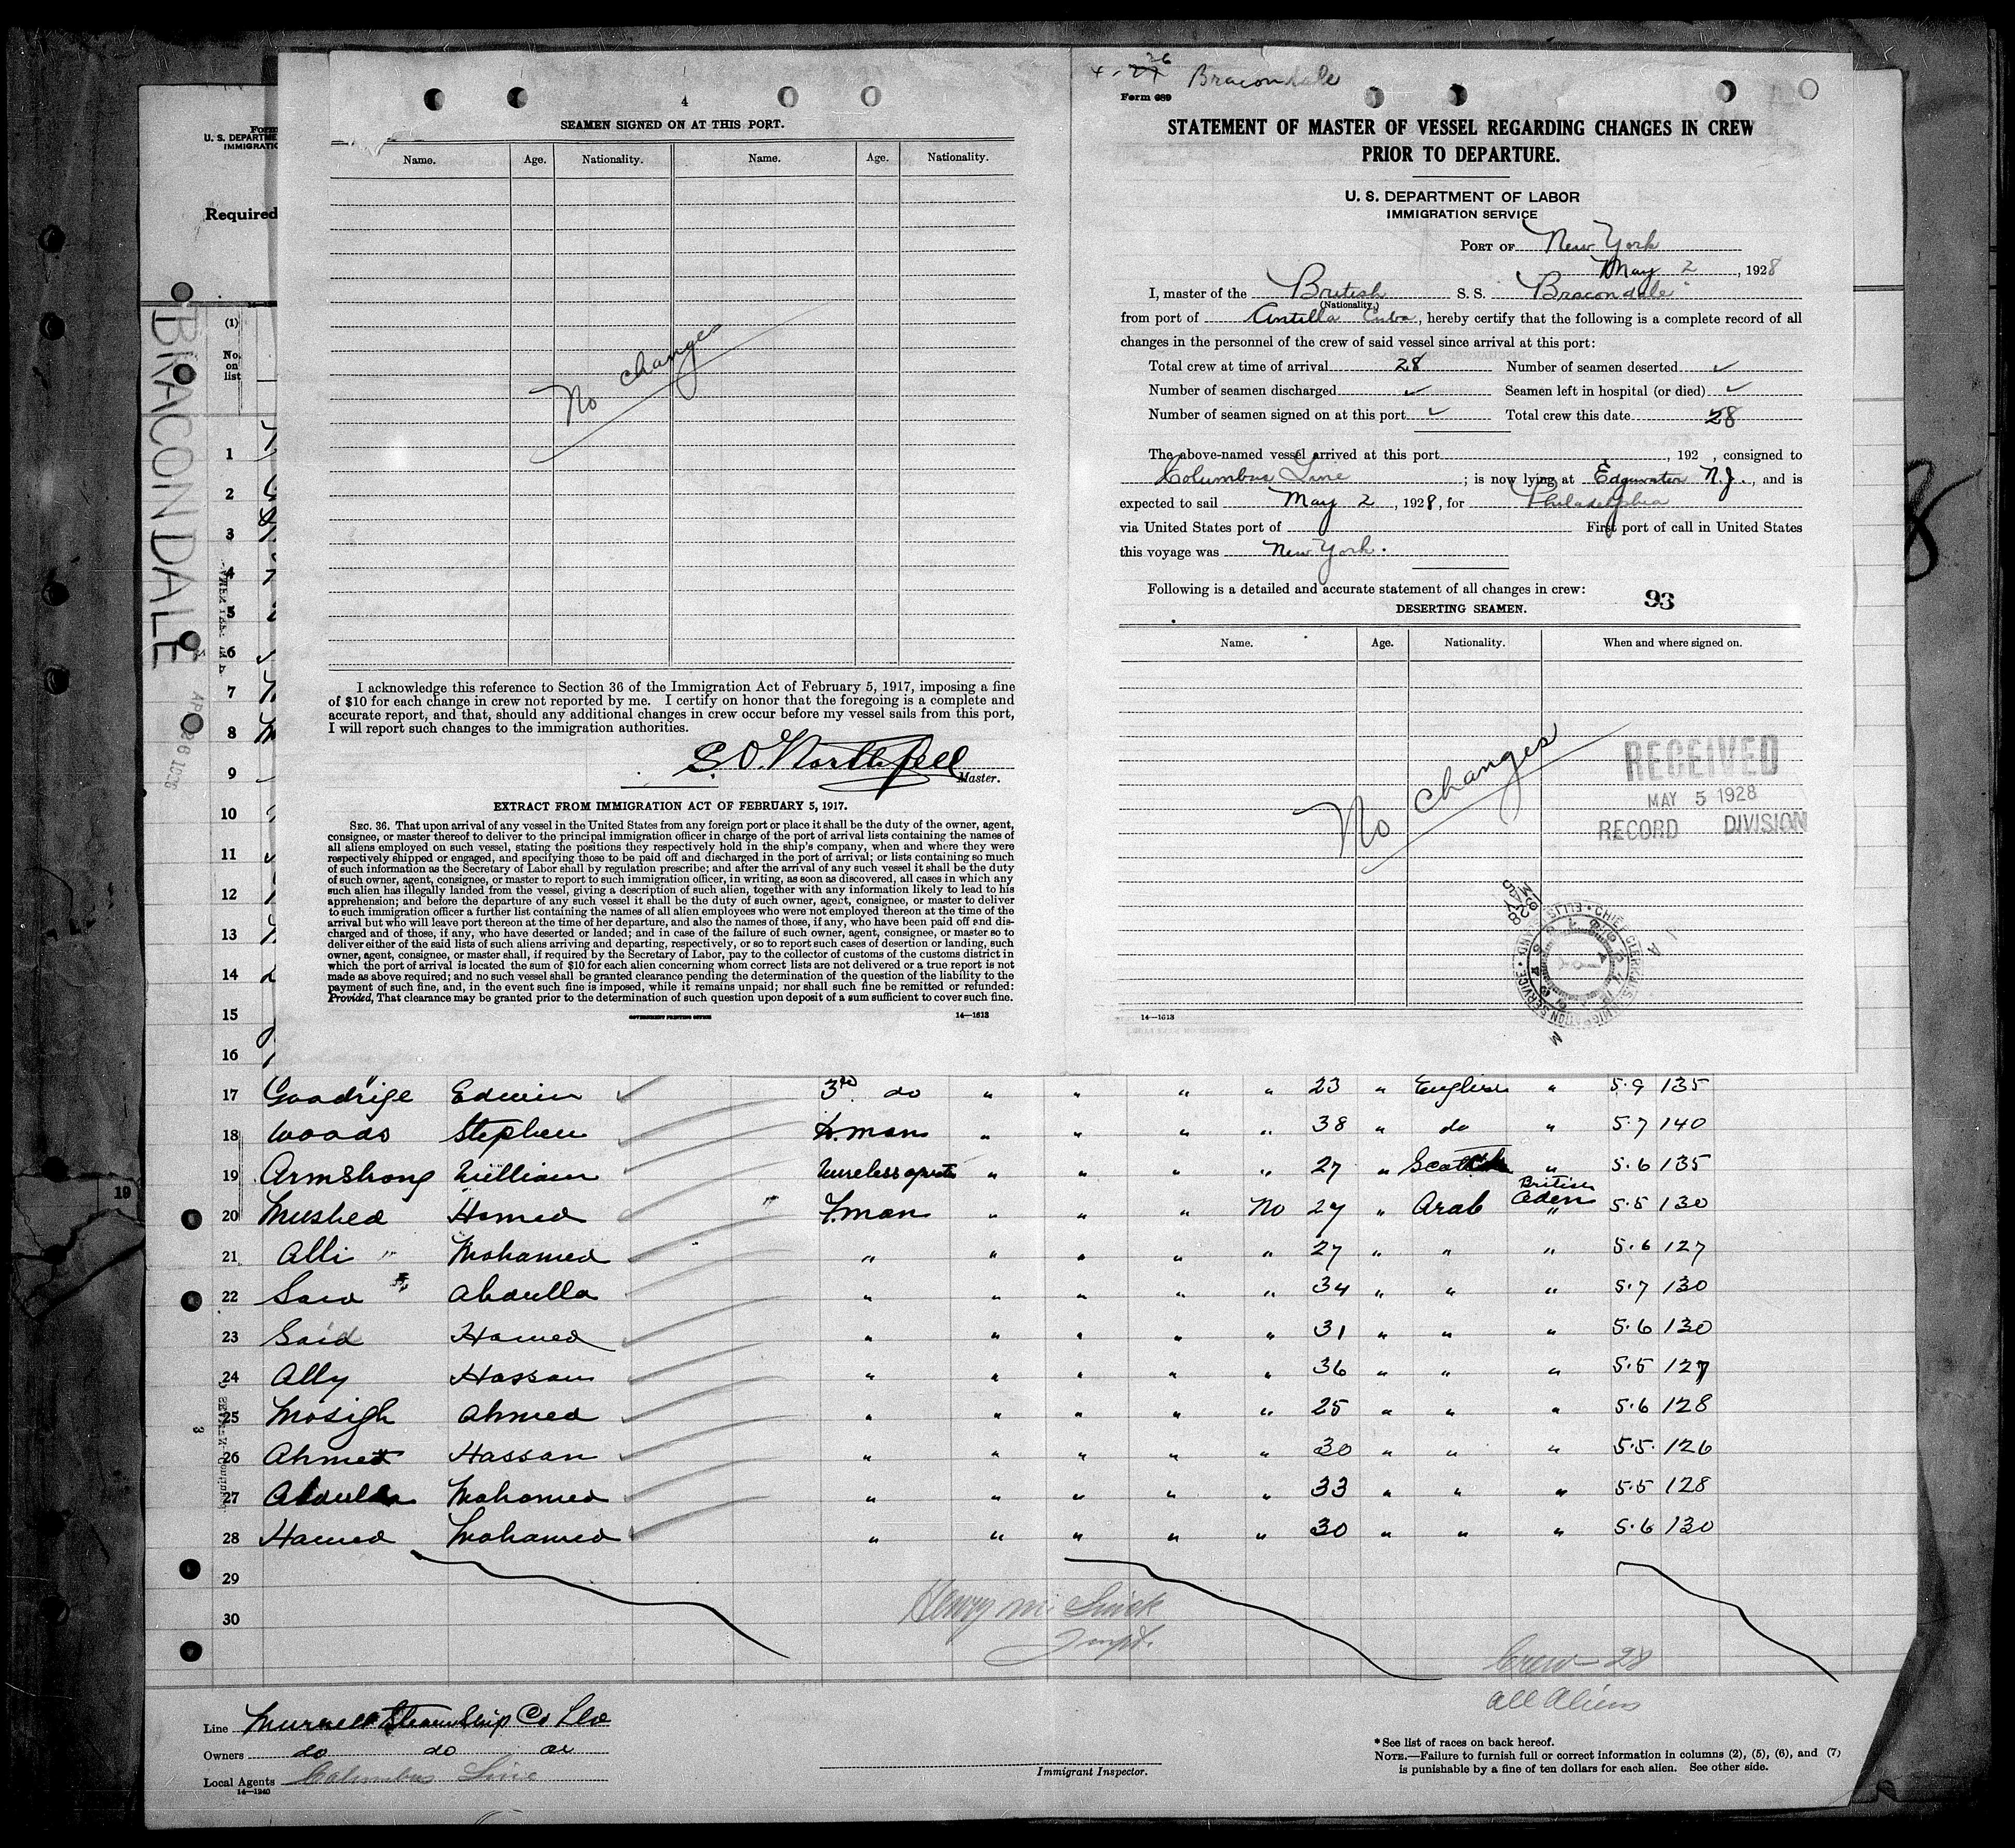 4
SEAMEN SIGNED ON AT THIS PORT.
Name. Age. Nationality. Name. Age. Nationality.
No changes
I acknowledge this reference to Section 36 of the Immigration Act of February 5, 1917, imposing a fine
of $10 for each change in crew not reported by me. I certify on honor that the foregoing is a complete and
accurate report, and that, should any additional changes in crew occur before my vessel sails from this port,
I will report such changes to the immigration authorities.
Master.
EXTRACT FROM IMMIGRATION ACT OF FEBRUARY 5, 1917.
SEC. 36. That upon arrival of any vessel in the United States from any foreign port or place it shall be the duty of the owner, agent,
consignee, or master thereof to deliver to the principal immigration officer in charge of the port of arrival lists containing the names of
all aliens employed on such vessel, stating the positions they respectively hold in the ship's company, when and where they were
respectively shipped or engaged, and specifying those to be paid off and discharged in the port of arrival; or lists containing so much
of such information as the Secretary of Labor shall by regulation prescribe; and after the arrival of any such vessel it shall be the duty
of such owner, agent, consignee, or master to report to such immigration officer, in writing, as soon as discovered, all cases in which any
such alien has illegally landed from the vessel, giving a description of such alien, together with any information likely to lead to his
apprehension; and before the departure of any such vessel it shall be the duty of such owner, agent, consignee, or master to deliver
to such immigration officer a further list containing the names of all alien employees who were not employed thereon at the time of the
arrival but who will leave port thereon at the time of her departure, and also the names of those, if any, who have been paid off and dis-
charged and of those, if any, who have deserted or landed; and in case of the failure of such owner, agent, consignee, or master so to
deliver either of the said lists of such aliens arriving and departing, respectively, or so to report such cases of desertion or landing, such
owner, agent, consignee, or master shall, if required by the Secretary of Labor, pay to the collector of customs of the customs district in
which the port of arrival is located the sum of $10 for each alien concerning whom correct lists are not delivered or a true report is not
made as above required; and no such vessel shall be granted clearance pending the determination of the question of the liability to the
payment of such fine, and, in the event such fine is imposed, while it remains unpaid; nor shall such fine be remitted or refunded:
Provided, That clearance may be granted prior to the determination of such question upon deposit of a sum sufficient to cover such fine.
GOVERNMENT PRINTING OFFICE 14—1613
26
Bracondale
Form 689
STATEMENT OF MASTER OF VESSEL REGARDING CHANGES IN CREW
PRIOR TO DEPARTURE.
U. S. DEPARTMENT OF LABOR
IMMIGRATION SERVICE
PORT OF New York
May 2, 1928
I, master of the British S. S. Bracondale
(Nationality.)
from port of Antilla Cuba, hereby certify that the following is a complete record of all
changes in the personnel of the crew of said vessel since arrival at this port:
Total crew at time of arrival 28 Number of seamen deserted ✓
Number of seamen discharged ✓ Seamen left in hospital (or died) ✓
Number of seamen signed on at this port ✓ Total crew this date 28
The above-named vessel arrived at this port , 192 , consigned to
Columbus Line ; is now lying at Edgewater N.J., and is
expected to sail May 2, 1928, for Philadelphia
via United States port of First port of call in United States
this voyage was New York.
Following is a detailed and accurate statement of all changes in crew:
93
DESERTING SEAMEN.
Name. Age. Nationality. When and where signed on.
No changes
RECEIVED
MAY 5 1928
RECORD DIVISION
14—1613
Form
U. S. DEPARTME
IMMIGRATIO
Required
BRACONDALE
(1)
No. on list
1
2
3
4
5
6
7
8
9
10
11
12
13
14
15
16
17 Goodrige Edwin ✓ 3rd do " " " " 23 " English " 5.9 135
18 Woods Stephen ✓ D.man " " " " 38 " do " 5.7 140
19 Armstrong William ✓ " " " " 27 " Scotch " 5.6 135
20 Mushed Hamed ✓ F.man " " " No 27 " Arab British Aden 5.5 130
21 Alli Mohamed ✓ " " " " " 27 " " " 5.6 127
22 Said Abdulla ✓ " " " " " 34 " " " 5.7 130
23 Said Hamed ✓ " " " " " 31 " " " 5.6 130
24 Ally Hassan ✓ " " " " " 36 " " " 5.5 127
25 Mosigh Ahmed ✓ " " " " " 25 " " " 5.6 128
26 Ahmed Hassan ✓ " " " " " 30 " " " 5.5. 126
27 Abdulla Mohamed ✓ " " " " " 33 " " " 5.5 128
28 Hamed Mohamed ✓ " " " " " 30 " " " 5.6 130
29
30
19
Crew 28
All Aliens
Line Murrell Steamship Co Ltd
Owners do do do
Local Agents Columbus Line
14—1240
Immigrant Inspector.
*See list of races on back hereof.
NOTE.—Failure to furnish full or correct information in columns (2), (5), (6), and (7)
is punishable by a fine of ten dollars for each alien. See other side.